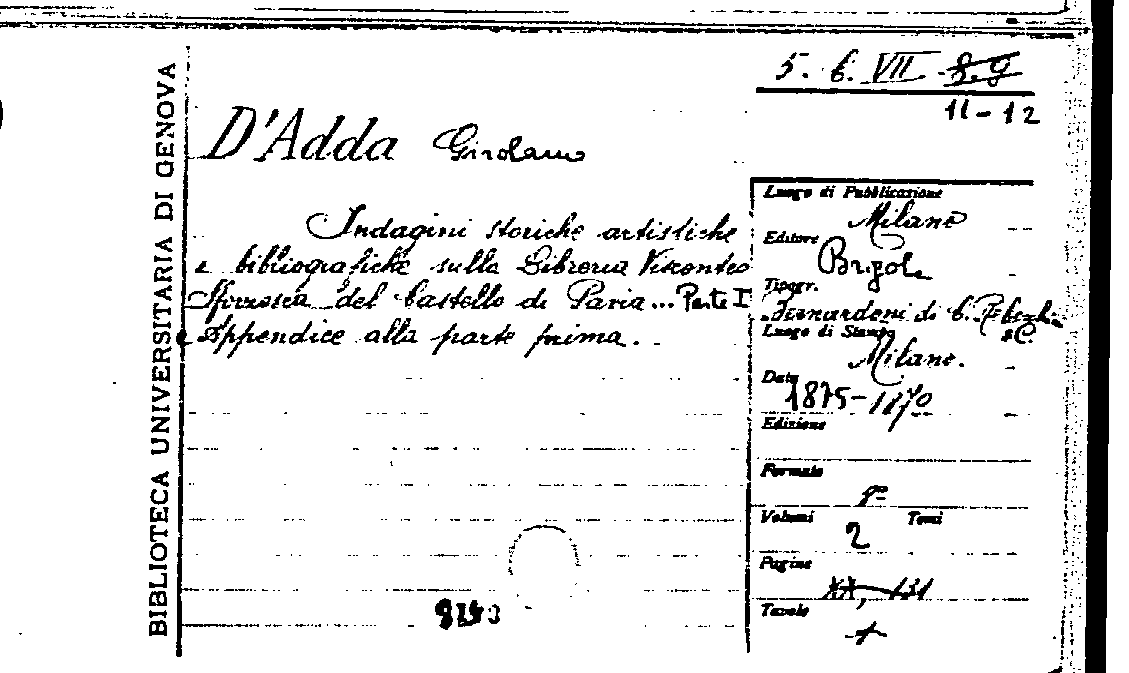 5. 6. VII 8.9
11-12
BIBLIOTECA UNIVERSITARIA DI GENOVA
D'Adda Girolamo
Indagini storiche artistiche
e bibliografiche sulla Libreria Visconteo
Sforzesca del Castello di Pavia... Parte I
e Appendice alla parte prima.
Luogo di Pubblicazione
Milano
Editore
Brigola
Tipogr.
Bernardoni di C. & C.
Luogo di Stampa
Milano.
Data
1875-
Edizione
Formato
8°
Volumi
2
Tomi
Pagine
XX, 131
Tavole